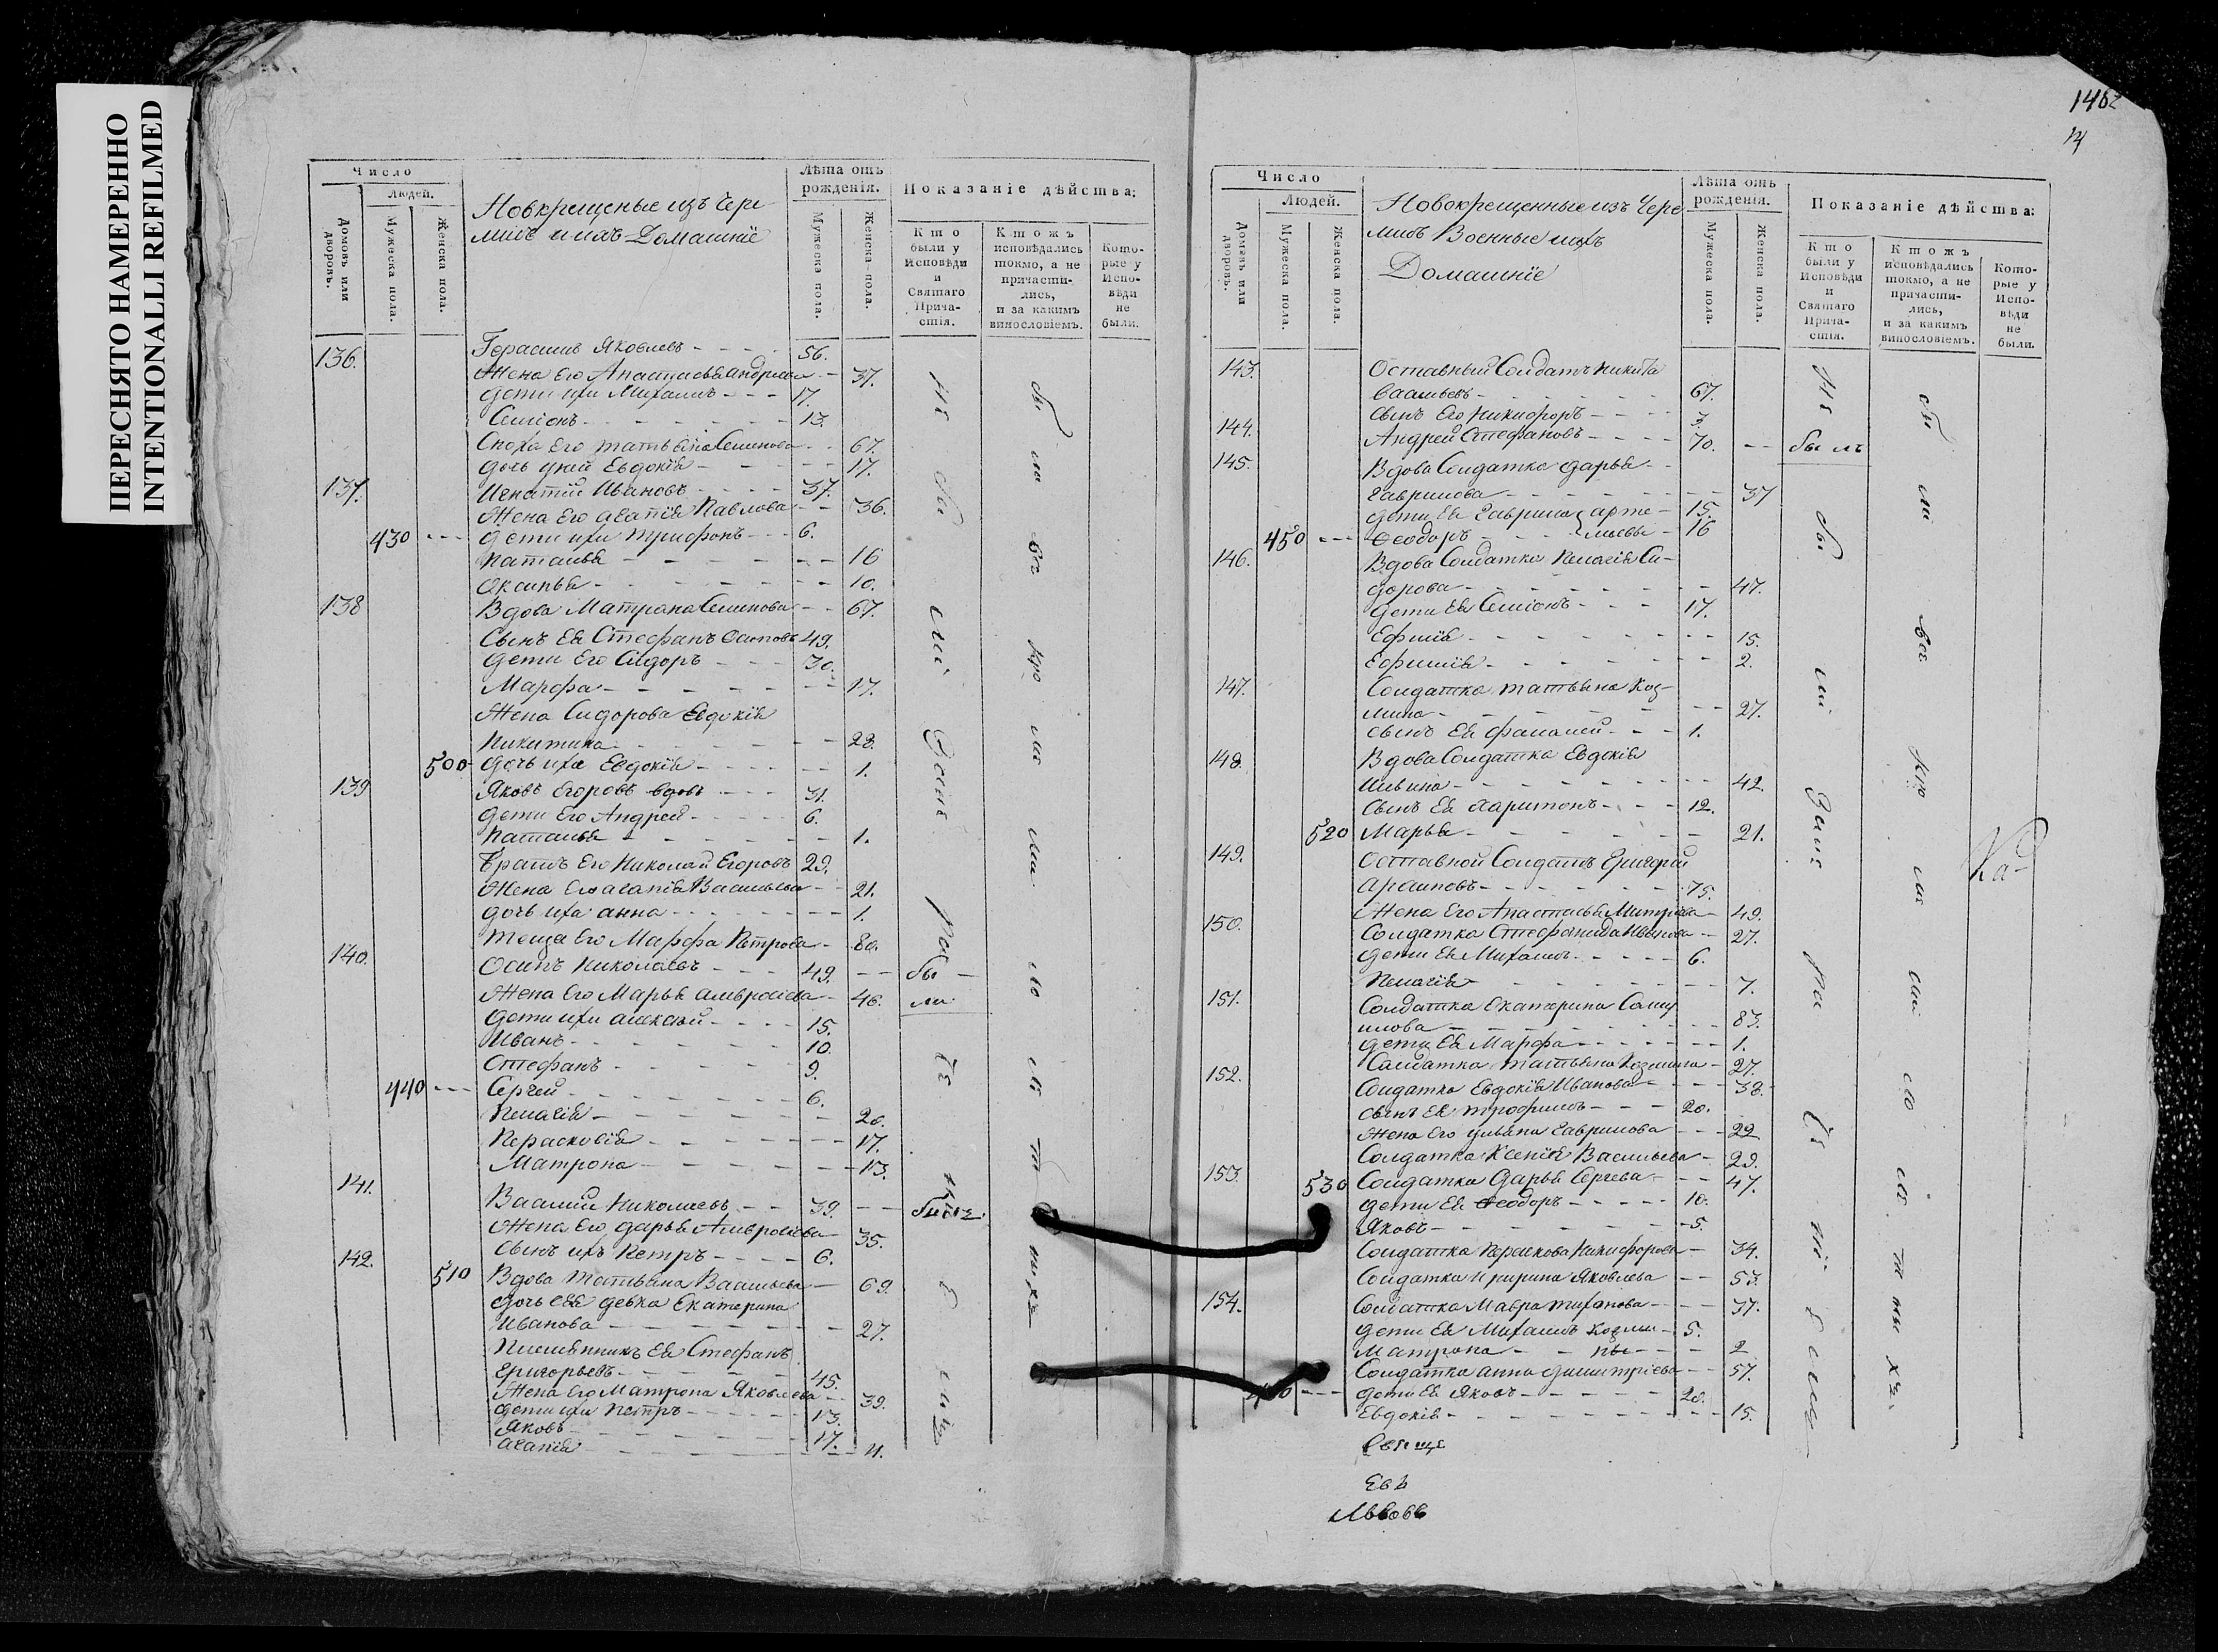 ПЕРЕСНЯТО НАМЕРЕННО
INTENTIONALLI REFILMED
Число
Людей.
Домовъ или дворовъ.
Мужеска пола.
Женска пола.
Новкрещеные изъ Чере
мисъ и ихъ Домашнїе
Лѣта отъ
рожденія.
Мужеска пола.
Женска пола.
Показаніе дѣйства:
Кто
были у
Исповѣди
и
Святаго
Прича-
стія.
Ктожъ
исповѣдались
токмо, а не
причасти-
лись,
и за какимъ
винословіемъ.
Кото-
рые у
Испо-
вѣди
не
были.
136. Герасимъ Яковлевъ 56.
Жена его Анастасья Андреева 37.
дети ихъ Михаилъ 17.
Семіонъ 13.
Сноха его татьяна Семенова 67.
дочь у ней Евдокія 17.
137. Игнатій Ивановъ 37.
Жена его агапія Павлова 36.
430 дети ихъ трифонъ 6.
наталья 16
Оксинья 10.
138 Вдова Матрона Семенова 67.
Сынъ ея Стефанъ Осиповъ 49.
дети его Сидоръ 30.
Марфа 17.
Жена Сидорова Евдокія
Никитина 28.
500 дочь ихъ Евдокія 1.
139 Яковъ Егоровъ вдовъ 31.
дети его Андрей 6.
наталья 1.
Братъ его Николай Егоровъ 29.
Жена его агапія Васильева 21.
дочь ихъ анна 1.
теща его Марфа Петрова 80.
140. Осипъ Николаевъ 49. бы-
Жена его Марья амвросіева 46. ли
дети ихъ алексей 15.
Иванъ 10.
Стефанъ 9.
440 Сергей 6.
Пелагія 20.
Персковія 17.
Матрона 13.
141. Василий Николаевъ 39. былъ
Жена его дарья Амвросіева 35.
Сынъ ихъ Петръ 6.
142. 510 Вдова татьяна Васильева 69.
дочь ея девка Екатерина
Иванова 27.
Племянникъ ея Стефанъ
Григорьевъ 45.
Жена его Матрона Яковлева 39.
дети ихъ петръ 13.
Яковъ 17.
агапія 11.
1482
14
Число
Людей.
Домовъ или дворовъ.
Мужеска пола.
Женска пола.
Новокрещенные изъ Чере
мисъ Военные ихъ
Домашнїе
Лѣта отъ
рожденія.
Мужеска пола.
Женска пола.
Показаніе дѣйства:
Кто
были у
Исповѣди
и
Святаго
Прича-
стія.
Ктожъ
исповѣдались
токмо, а не
причасти-
лись,
и за какимъ
винословіемъ.
Кото-
рые у
Испо-
вѣди
не
были.
143. Оставный Солдатъ никита
васильевъ 67.
сынъ его никифоръ 3.
144. Андрей Стефановъ 70. былъ
145. Вдова Солдатка дарья
гаврилова 37
дети ея гаврила арте- 15.
450 Феодоръ мьевы 16
146. Вдова Солдатка пелагія Си-
дорова 47.
дети ея Семіонъ 17.
15.
2.
147. Солдатка татьяна Коз-
мина 27.
сынъ ея 1.
148. Вдова Солдатка Евдокія
Ильина 42.
Сынъ ея харитонъ 12.
520 Марья 21.
149. Оставной Солдатъ Григорий
75.
Жена его Анастасья Митріева 49.
150. Солдатка Стефанида Иванова 27.
дети ея Михаилъ 6.
Пелагія 7.
151. Солдатка Екатерина Сами
лова 83.
дети ея Марфа 1.
Салдатка татьяна Козмина 27.
152. Солдатка Евдокія Иванова 38.
сынъ ея трофимъ 20.
Жена его ульяна гаврилова 22
Солдатка Ксенія Васильева 29.
153. 530 Солдатка дарья Сергева 47.
дети ея Феодоръ 10.
Яковъ 5.
Солдатка Никифорова 34.
Солдатка Яковлева 53.
154. Солдатка Мавра тиханова 37.
дети ея Михаилъ Козми- 5.
Матрона ны 2
Солдатка анна димитріева 57.
дети ея Яковъ 20.
Евдокія 15.
Ка-
Свяще
Евѣ
Львовъ